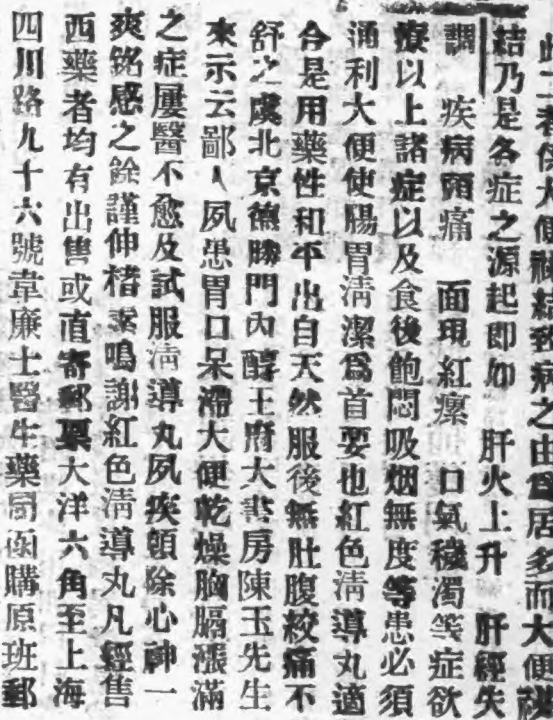 此二者使大便祕結致病之由爲居多而大便祕
結乃是各症之源起即如 肝火上升 肝經失
調 疾病頭痛 面現紅瘰 口氣穢濁等症欲
療以上諸症以及食後飽悶吸烟無度等患必須
通利大便使腸胃淸潔爲首要也紅色淸導丸適
合是用藥性和平出自天然服後無肚腹絞痛不
舒之虞北京德勝門內醇王府大書房陳玉先生
來示云鄙人夙患胃口呆滯大便乾燥胸膈漲滿
之症屢醫不愈及試服淸導丸夙疾頓除心神一
爽銘感之餘謹伸楮素鳴謝紅色淸導丸凡經售
西藥者均有出售或直寄郵票大洋六角至上海
四川路九十六號韋廉士醫生藥局函購原班郵